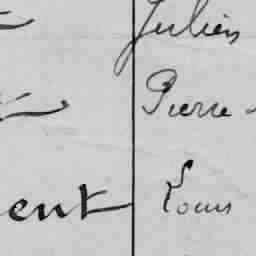 Julien
Pierre
ent Louis